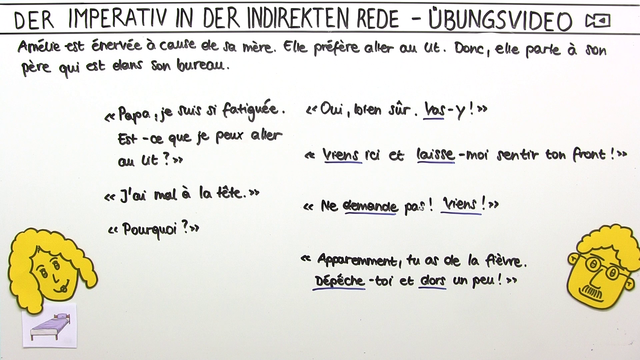 DER IMPERATIV IN DER INDIREKTEN REDE - ÜBUNGSVIDEO
Amélie est énervée à cause de sa mère. Elle préfère aller au lit. Donc, elle parle à son
père qui est dans son bureau.
« Papa, je suis si fatiguée.
Est-ce que je peux aller
au lit ? »
« Oui, bien sûr. Vas-y ! »
« Viens ici et laisse-moi sentir ton front ! »
« J'ai mal à la tête. »
« Ne demande pas ! Viens ! »
« Pourquoi ? »
« Apparemment, tu as de la fièvre.
Dépêche-toi et dors un peu ! »